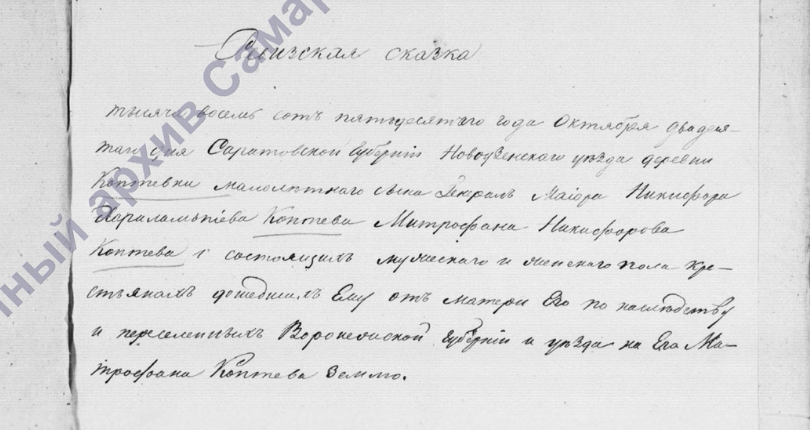 Ревизская сказка
тысяча восемь сотъ пятидесятого года Октября двадеся-
таго дня Саратовской Губерніи Новоузенскаго уѣзда деревни
Коптевки малолѣтнаго сына Генералъ Маіора Никифора
Харлампіева Коптева Митрофана Никифорова
Коптева о состоящихъ мужескаго и женскаго пола кре-
стьянахъ дошедшихъ Ему отъ матери Его по наслѣдству
и переселенныхъ Воронежской Губерніи и уѣзда на Его Ми-
трофана Коптева землю.
ный архив Самар